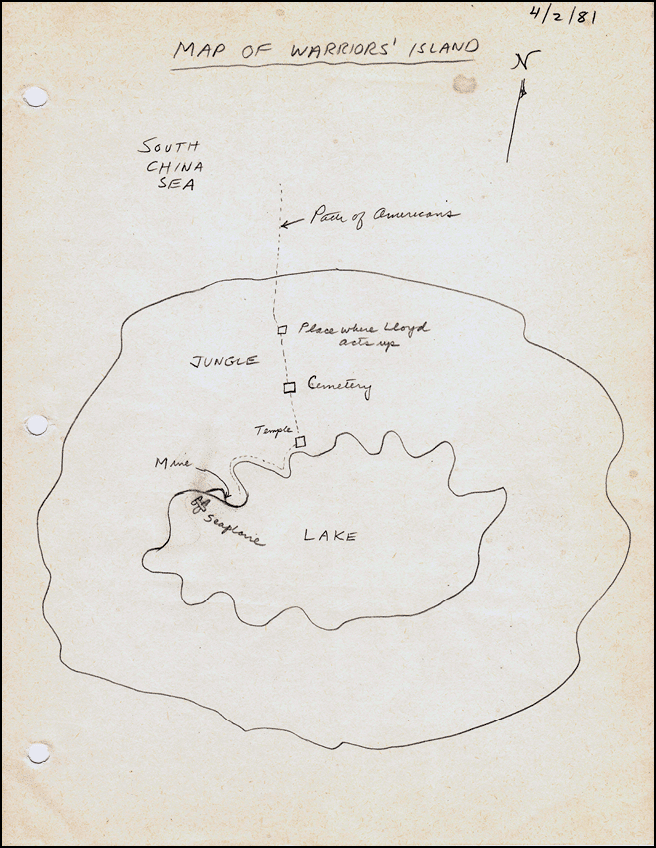 4/2/81
MAP OF WARRIORS' ISLAND
N
SOUTH
CHINA
SEA
Path of Americans
Place where Lloyd
acts up
JUNGLE
Cemetery
Temple
Mine
Seaplane
LAKE